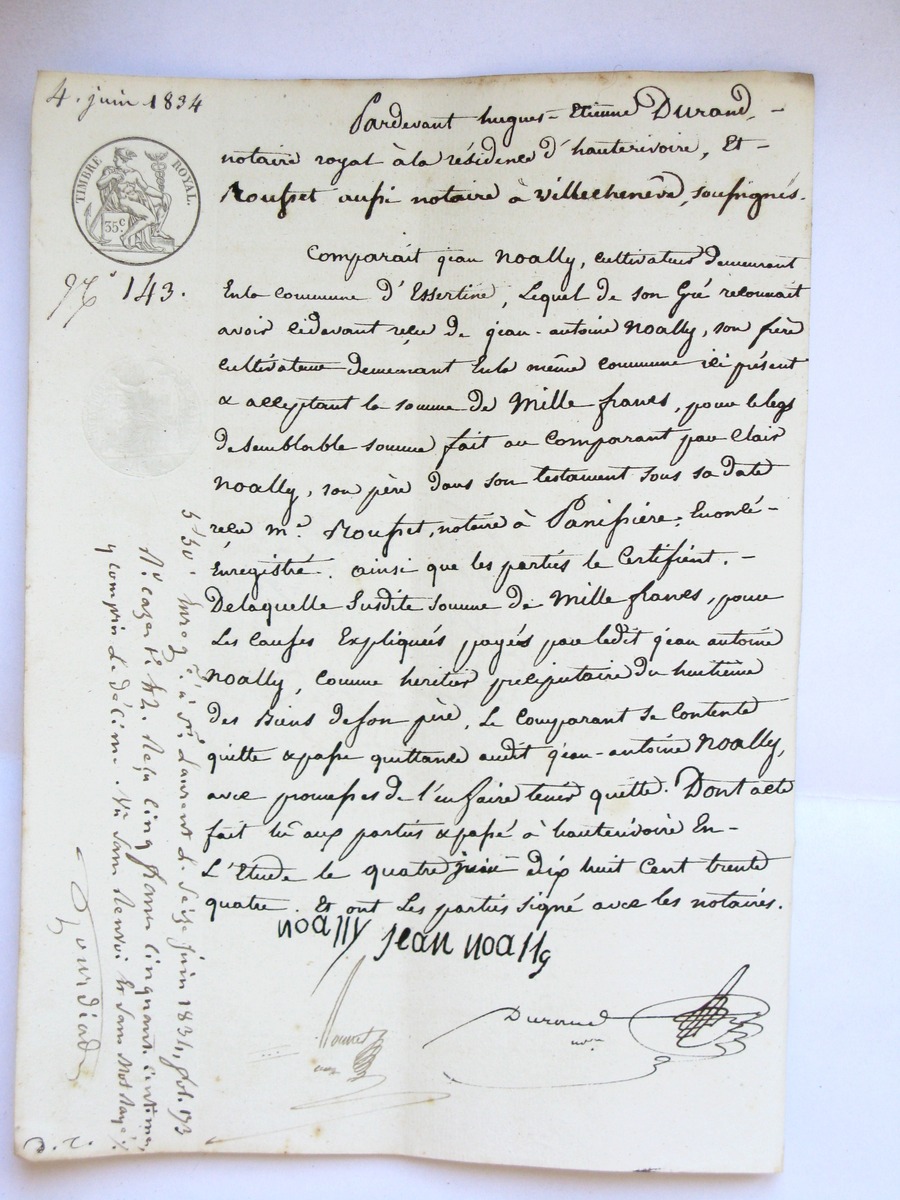 4. juin 1834
TIMBRE ROYAL.
35c
No 143.
Pardevant hugues-Etienne Durand, -
notaire royal à la résidence d'hauterivoire, Et -
Rousset aussi notaire à Villechenêve, soussignés.
Comparait jean Noally, cultivateur demeurant
En la commune d'Essertine, Lequel de son Gré reconnait
avoir cidevant reçu de jean-antoine Noally, son frère
cultivateur demeurant En la même commune ici présent
& acceptant la somme de Mille francs, pour le legs
de semblable somme fait au Comparant par Clair
Noally, son père dans son testament sous sa date
reçu me. Rousset, notaire à Panissière,
Enregistré. ainsi que les parties le Certifient. -
De laquelle Susdite somme de Mille francs, pour
Les Causes Expliquées payés par ledit jean antoine
Noally, Comme heritier préciputaire du huitième
des Biens de son père, Le Comparant se Contente
quitte & passe quittance audit jean-antoine Noally,
avec promesses de l'en faire tenir quitte. Dont acte
fait lu aux parties & passé à hauterivoire En -
L'Etude le quatre juin dix huit Cent trente
quatre. Et ont Les parties signé avec les notaires.
noally jean noally
Durand
Enreg. à St. Laurent le Seize juin 1834, fol. 173
Reçu cinq francs cinquante centimes,
y compris le décime. Vu sans Renvoi Et sans Mot Rayé